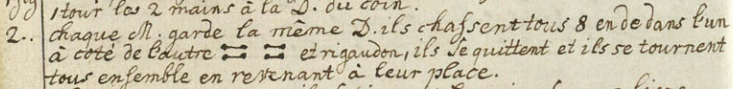 1 tour les 2 mains à la D. du coin.
2.. chaque M. garde la même D. ils chassent tous 8 en dedans l'un
à coté de l'autre et rigaudon, ils se quittent et ils se tournent
tous ensemble en revenant à leur place.